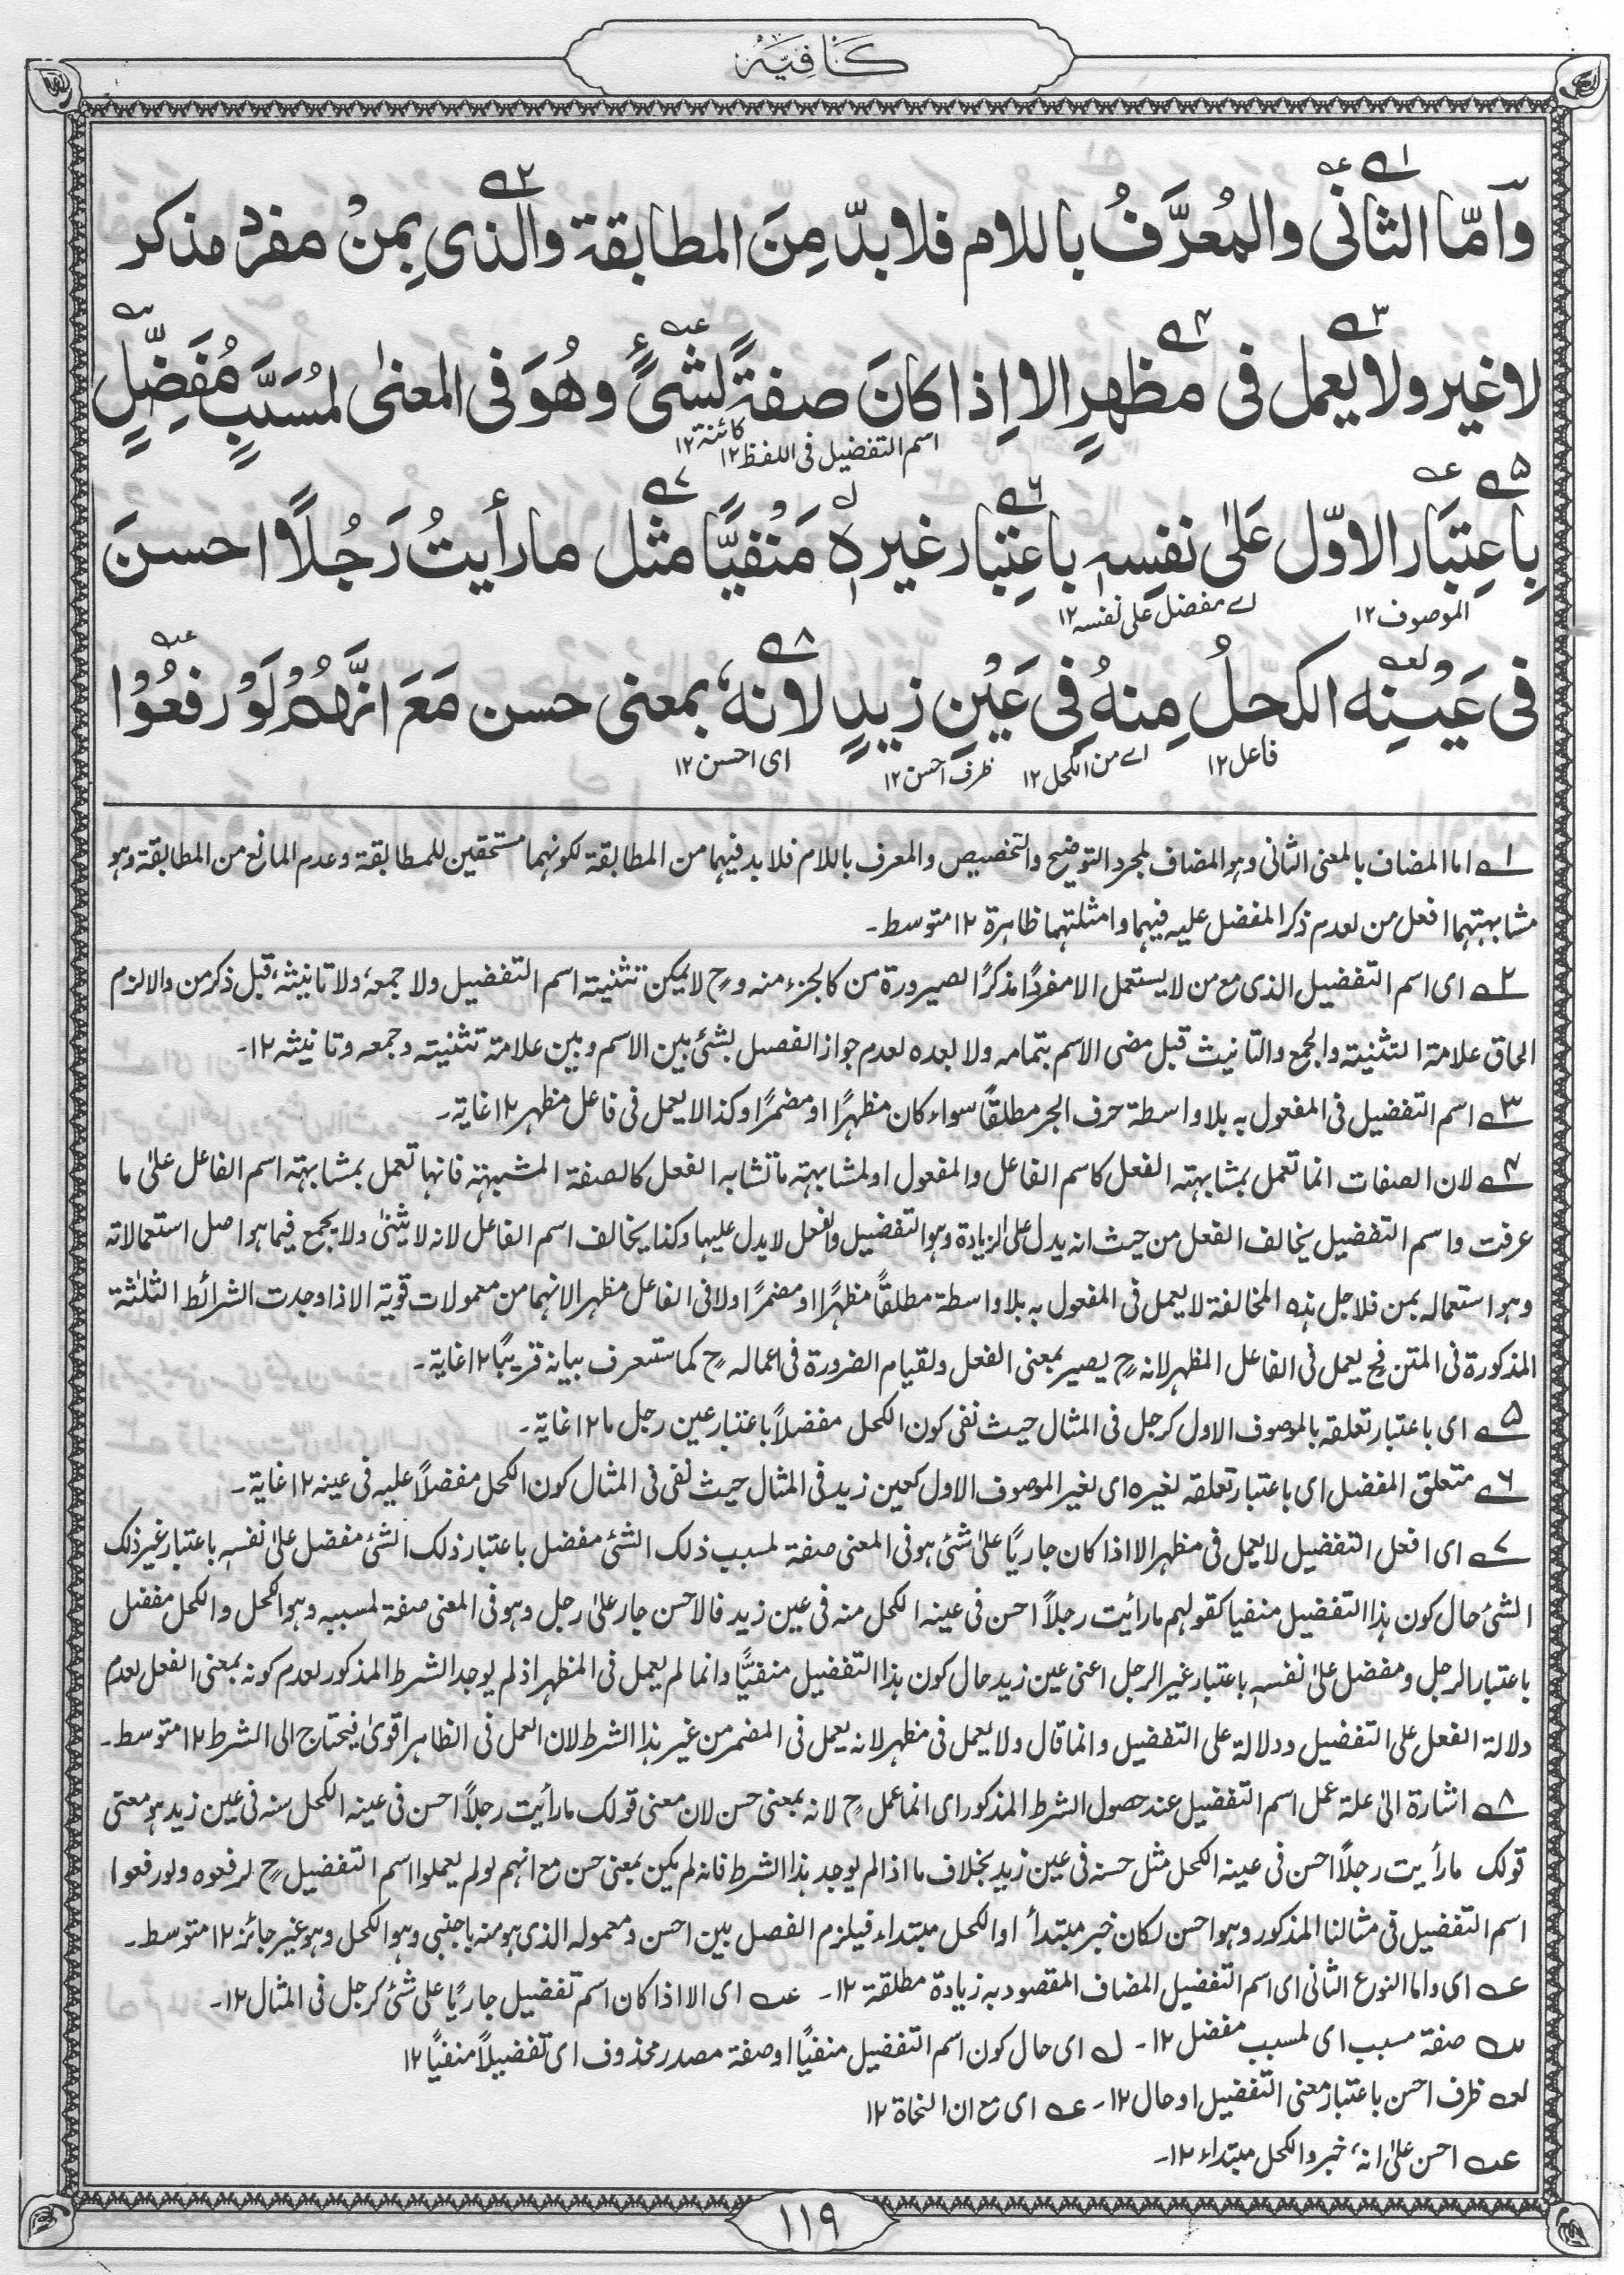 كَافِيَهْ
وَاَمّا الثانی والمُعرَّفُ باللام فلا بدّ مِنَ المطابقة والذی بِمِنْ مفرد مذكر
لا غير ولا يعمل فی مظهرٍ الا اِذا كانَ صفةً لشیءٍ وهُوَ فی المعنیٰ لمُسَبَّبٍ مُفَضَّلٍ
اسم التفضيل فی اللفظ ۱۲ كائنة ۱۲
بِاعِتبَار الاوّل عَلیٰ نفسِهٖ باعِتبار غيرهٖ مَنْفيًّا مثل مارأيتُ رَجُلًا احسنَ
الموصوف ۱۲ اے مفضل علی نفسہ ۱۲
فی عَيْنِه الكحلُ مِنهُ فِی عَيْنِ زيدٍ لانهٗ بمعنی حسن مَعَ انَّهُمْ لَوْ رفعُوْا
فاعل ۱۲ اے من الكحل ۱۲ ظرف احسن ۱۲ ای احسن ۱۲
۱ے اما المضاف بالمعنی الثانی وہو المضاف لمجرد التوضیح والتخصیص والمعرف باللام فلا بد فیہما من المطابقۃ لکونہما مستحقین للمطابقۃ وعدم المانع من المطابقۃ وہو
مشابہتہما افعل من لعدم ذکر المفضل علیہ فیہما وامثلتہما ظاہرۃ ۱۲ متوسط۔
۲ے ای اسم التفضیل الذی مع من لا یستعمل الا مفردًا مذکرًا لصیرورۃ من کالجزء منہ وح لا یمکن تثنیتہ اسم التفضیل ولا جمعہ، ولا تانیثہ، قبل ذکر من والا لزم
الحاق علامۃ التثنیتہ والجمع والتانیث قبل مضی الاسم بتمامہ ولا بعدہ لعدم جواز الفصل بشئ بین الاسم وبین علامۃ تثنیتہ وجمعہ وتانیثہ ۱۲۔
۳ے اسم التفضیل فی المفعول بہ بلا واسطۃ حرف الجر مطلقًا سواء کان مظہرًا او مضمرًا وکذا لا یعمل فی فاعل مظہر ۱۲ غایۃ۔
۴ے لان الصفات انما تعمل بمشابہتہ الفعل کاسم الفاعل والمفعول او لمشابہتہ ما تشابہ الفعل کالصفۃ المشبہتہ فانہا تعمل بمشابہتہ اسم الفاعل علیٰ ما
عرفت واسم التفضیل یخالف الفعل من حیث انہ یدل علی الزیادۃ وہو التفضیل والفعل لا یدل علیہا وکذا یخالف اسم الفاعل لانہ لا یثنیٰ ولا یجمع فیما ہو اصل استعمالاتہ
وہو استعمالہ بمن فلاجل ہذہ المخالفۃ لا یعمل فی المفعول بہ بلا واسطۃ مطلقًا مظہرًا او مضمرًا ولا فی الفاعل مظہر الانہما من معمولات قویۃ الا اذا وجدت الشرائط الثلٰثۃ
المذکورۃ فی المتن فح یعمل فی الفاعل المظہر لانہ ح یصیر بمعنی الفعل ولقیام الضرورۃ فی اعمالہ ح کما ستعرف بیانہ قریبًا ۱۲ غایۃ۔
۵ے ای باعتبار تعلقہ بالموصوف الاول کرجل فی المثال حیث نفی کون الکحل مفضلاً باعتبار عین رجل ما ۱۲ غایۃ۔
۶ے متعلق المفضل ای باعتبار تعلقہ لغیرہ ای لغیر الموصوف الاول کعین زید فی المثال حیث نفی فی المثال کون الکحل مفضلاً علیہ فی عینہ ۱۲ غایۃ۔
۷ے ای افعل التفضیل لا یعمل فی مظہر الا اذا کان جاریًا علیٰ شئ ہو فی المعنی صفۃ لمسبب ذلک الشئ مفضل باعتبار ذلک الشئ مفضل علیٰ نفسہٖ باعتبار غیر ذلک
الشئ حال کون ہذا التفضیل منفیا کقولہم مارأیت رجلاً احسن فی عینہ الکحل منہ فی عین زید فالاحسن جار علیٰ رجل وہو فی المعنی صفۃ لمسببہ وہو الکحل والکحل مفضل
باعتبار الرجل ومفضل علیٰ نفسہٖ باعتبار غیر الرجل اعنی عین زید حال کون ہذا التفضیل منفیًّا وانما لم یعمل فی المظہر اذ لم یوجد الشرط المذکور لعدم کونہ بمعنی الفعل لعدم
دلالۃ الفعل علی التفضیل ودلالۃ علی التفضیل وانما قال ولا یعمل فی مظہر لانہ یعمل فی المضمر من غیر ہذا الشرط لان العمل فی الظاہر اقویٰ فیحتاج الی الشرط ۱۲ متوسط۔
۸ے اشارۃ الیٰ علۃ عمل اسم التفضیل عند حصول الشرط المذکور ای انما عمل ح لانہ بمعنی حسن لان معنی قولک مارأیت رجلاً احسن فی عینہ الکحل منہ فی عین زید ہو معنی
قولک مارأیت رجلاً احسن فی عینہ الکحل مثل حسنہ فی عین زید بخلاف ما اذا لم یوجد ہذا الشرط فانہ لم یکن بمعنی حسن مع انہم لو لم یعملوا اسم التفضیل ح لرفعوہ ولو رفعوا
اسم التفضیل فی مثالنا المذکور وہو احسن لکان خبر مبتدأ او الکحل مبتداء فیلزم الفصل بین احسن ومعمولہ الذی ہو منہ باجنبی وہو الکحل وہو غیر جائز ۱۲ متوسط۔
عــہ ای واما النوع الثانی ای اسم التفضیل المضاف المقصود بہ زیادۃ مطلقۃ ۱۲۔ عــہ ای الا اذا کان اسم تفضیل جاریًا علی شئ کرجل فی المثال ۱۲۔
ســہ صفۃ مسبب ای لمسبب مفضل ۱۲۔ لــہ ای حال کون اسم التفضیل منفیًا او صفۃ مصدر محذوف ای تفضیلاً منفیًا ۱۲
لعــہ ظرف احسن باعتبار معنی التفضیل او حال ۱۲۔ عــہ ای مع ان النحاۃ ۱۲
عــہ احسن علیٰ انہ، خبر والکحل مبتداء ۱۲۔
۱۱۹